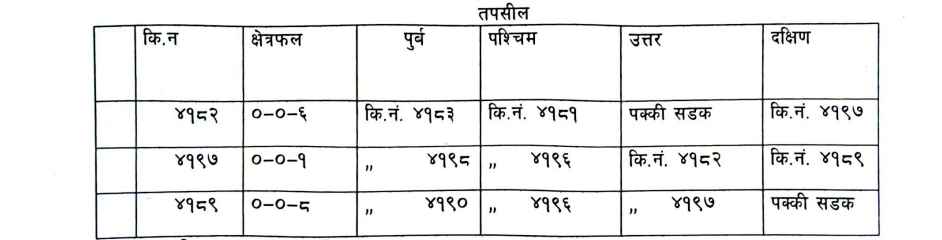 तपसील
कि.न क्षेत्रफल पुर्व पश्चिम उत्तर दक्षिण
४१८२ ०-०-६ कि.नं. ४१८३ कि.नं. ४१८१ पक्की सडक कि.नं. ४१९७
४१९७ ०-०-१ ,, ४१९८ ,, ४१९६ कि.नं. ४१८२ कि.नं. ४१८९
४१८९ ०-०-८ ,, ४१९० ,, ४१९६ ,, ४१९७ पक्की सडक